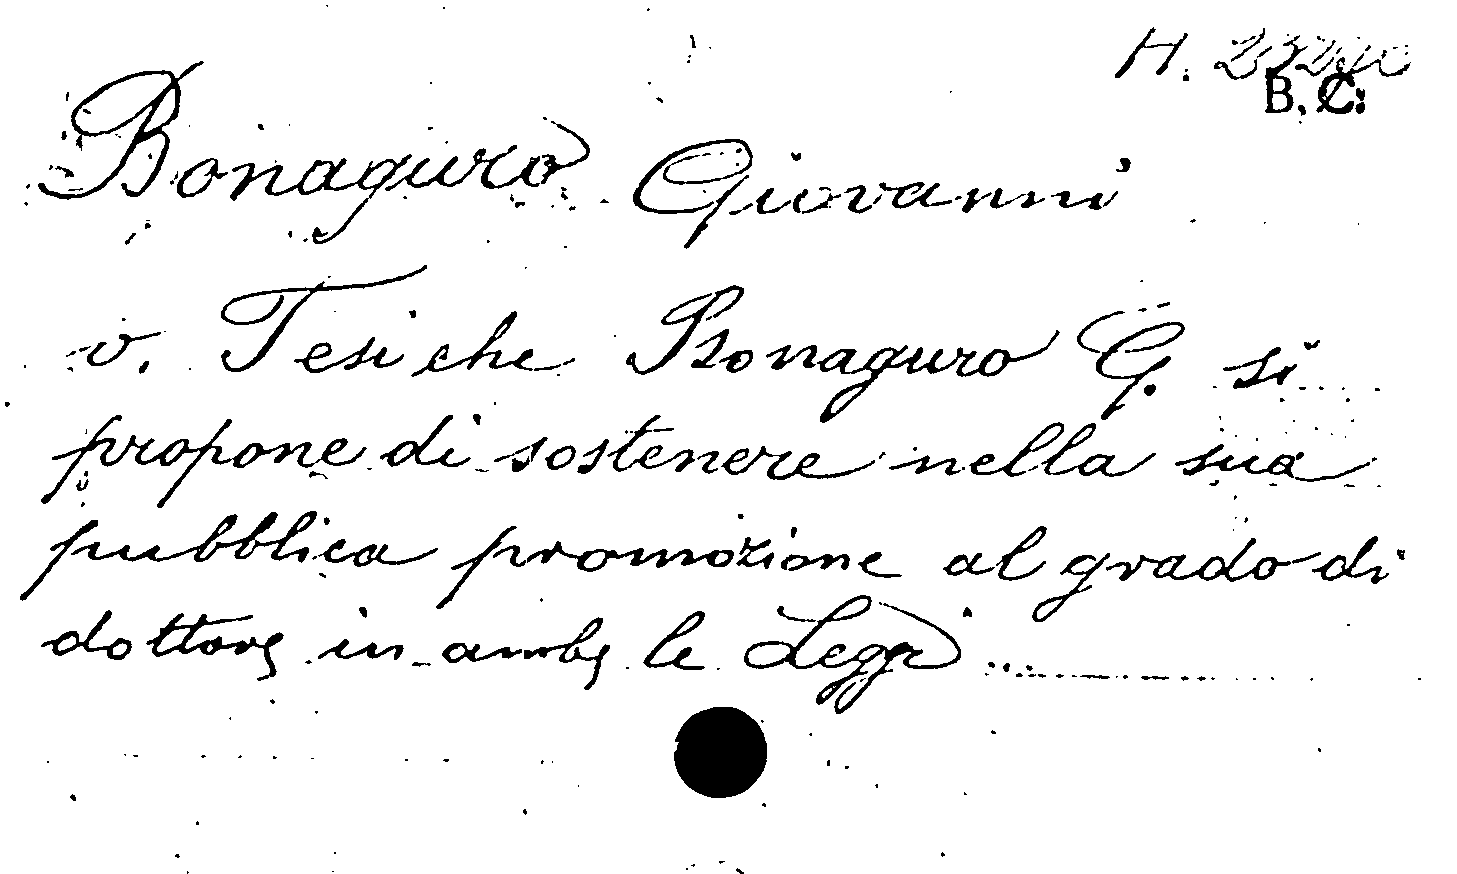 H.
B. C.
Bonaguro Giovanni
v. Tesi che Bonaguro G. si
propone di sostenere nella sua
pubblica promozione al grado di
dottore in ambe le Leggi